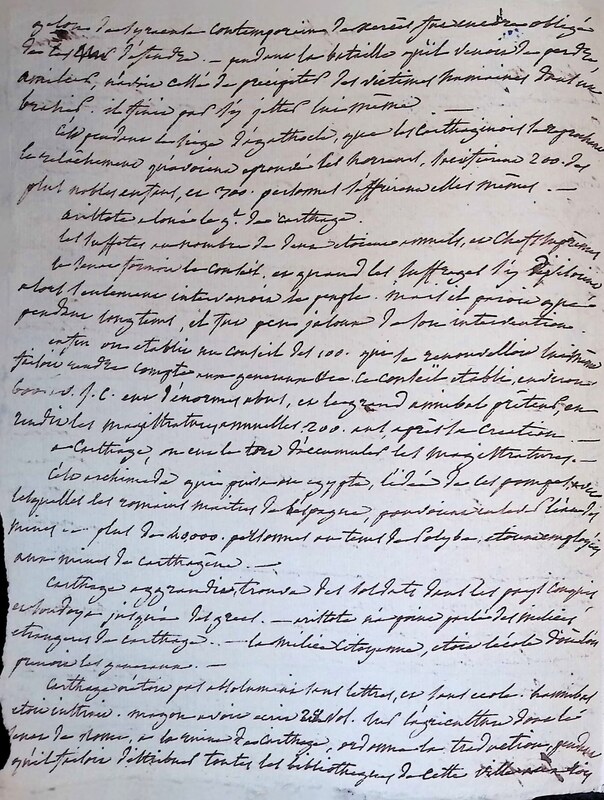 gelon de Syracuse contemporain de xerxès fut encore obligé
de les défendre. — pendant la bataille qu'il venoit de perdre
amilcar, n'avoit cessé de precipiter des victimes humaines dans un
brasier. il finit par s'y jetter lui même —
C'est pendant le siege d'agathocle, que les Carthaginois se reprochant
le relachement qu'avoient eprouvé les horreurs, sacrifierent 200. des
plus nobles enfans, et 300. personnes s'offrirent elles mêmes. —
aristote a loué le gt. de Carthage.
les suffetes au nombre de deux etoient annuels, et Chefs suprêmes
le senat formoit le conseil, et quand les suffrages s'y
alors seulement intervenoit le peuple. mais il paroit que
pendant longtems, il fut peu jaloux de son intervention.
enfin on etablit un conseil des 100. qui se renouvelloit lui même
faisoit rendre compte aux generaux ce conseil etabli, environ
J. C. eut d'enormes abus, et le grand annibal pretend, en
rendit les magistratures annuelles. 200. ans, après sa Creation —
a Carthage, on eut le tort d'accumuler les magistratures. —
C'est archimede qui puisa en egypte, l'idée de ces pompes, avec
lesquelles les romains maitres de l'espagne, pomperent l'eau des
mines. — plus de 40000. personnes au tems de Polybe, etoient employées
aux mines de Carthagène. —
Carthage aggrandie, trouva des soldats dans les pays conquis
et soudoya jusqu'à des grecs. — aristote n'a point parlé des milices
etrangeres de Carthage. — la milice citoyenne, etoit l'école d'où l'on
prenoit les generaux. —
Carthage n'etoit pas absolument sans lettres, et sans ecole. hannibal
etoit cultivé. magon avoit ecrit 28 vol. sur l'agriculture dont le
senat de Rome, à la ruine de Carthage, ordonna la traduction, pendant
qu'il faisoit distribuer toutes les bibliotheques de cette ville aux